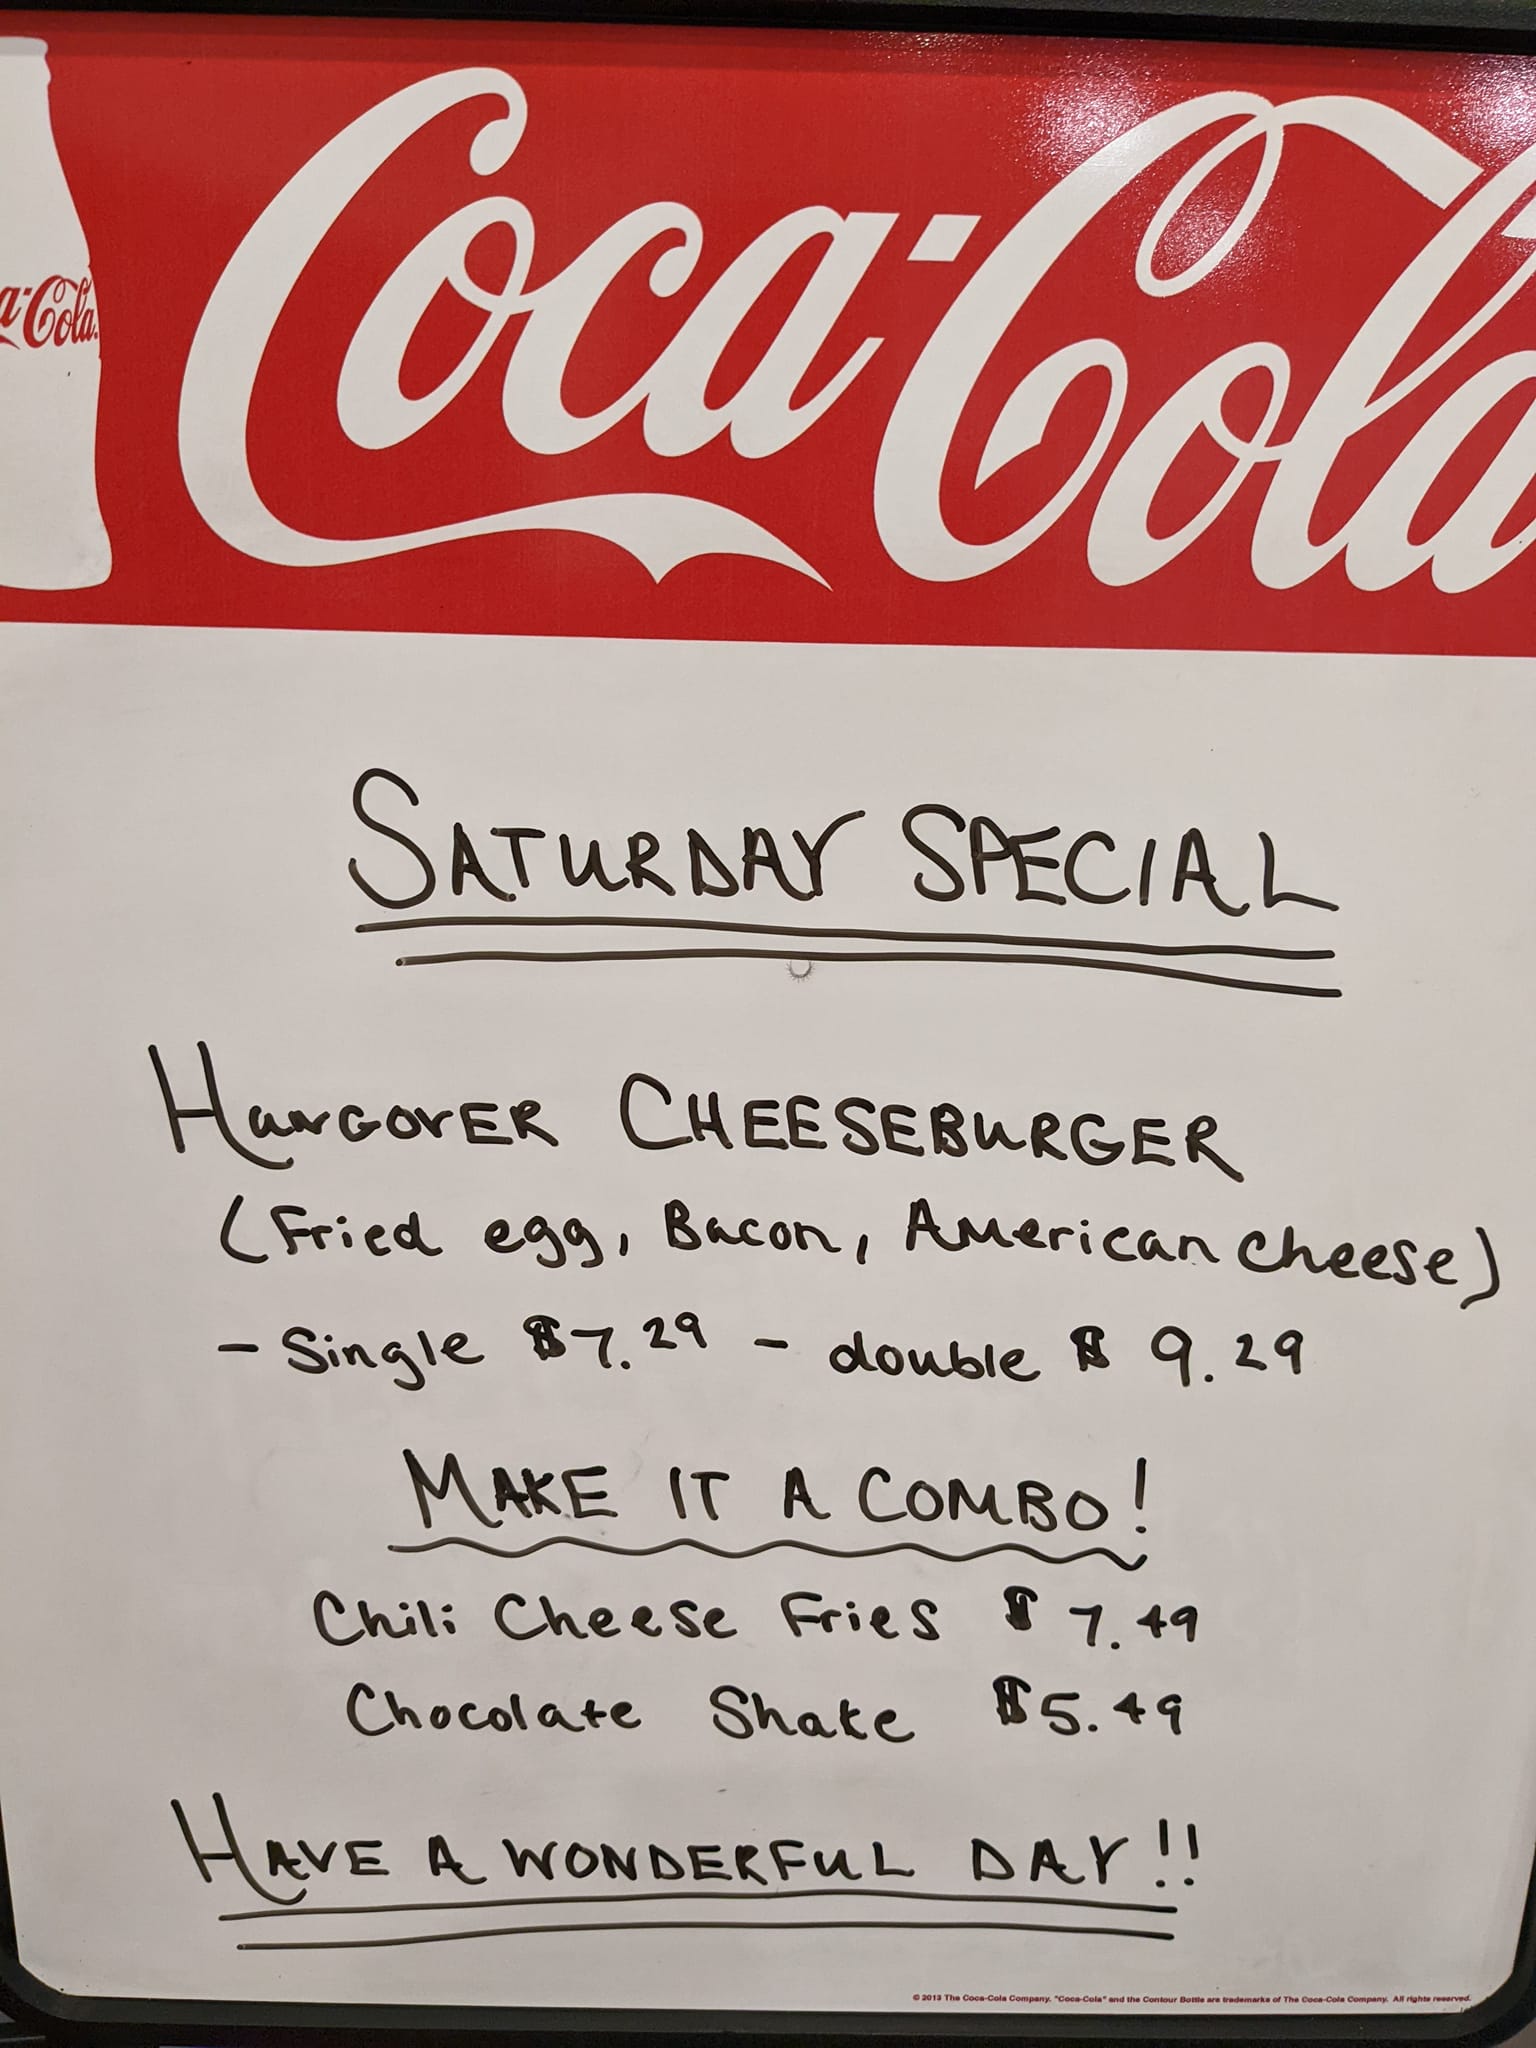 Coca-Cola
a-Cola
SATURDAY SPECIAL
HANGOVER CHEESEBURGER
(Fried egg, Bacon, American cheese)
- Single $7.29 - double $9.29
MAKE IT A COMBO!
Chili Cheese Fries $7.49
Chocolate Shake $5.49
HAVE A WONDERFUL DAY!!
© 2013 The Coca-Cola Company. "Coca-Cola" and the Contour Bottle are trademarks of The Coca-Cola Company. All rights reserved.